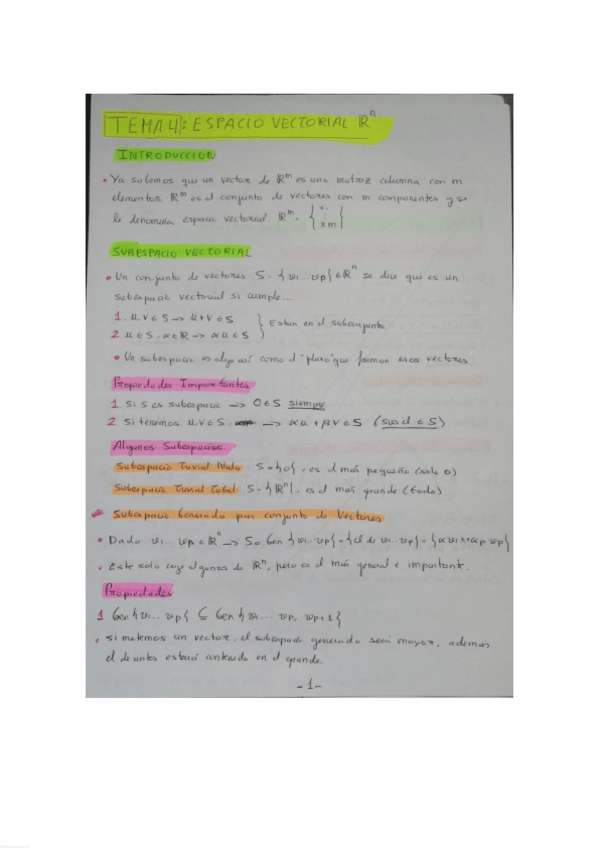 TEMA 4: ESPACIO VECTORIAL ℝⁿ
INTRODUCCION
• Ya sabemos que un vector de ℝᵐ es una matriz columna con m
elementos. ℝᵐ es el conjunto de vectores con m componentes y se
le denomina espacio vectorial. ℝᵐ = { x₁ ⋮ xm }
SUBESPACIO VECTORIAL
• Un conjunto de vectores S = {v1... vp} ∈ ℝⁿ se dice que es un
subespacio vectorial si cumple...
1. u, v ∈ S -> u+v ∈ S
2. u ∈ S, α ∈ ℝ -> αu ∈ S } Estan en el subconjunto.
• Un subespacio es algo así como el "plano" que forman esos vectores
Propiedades Importantes
1. Si S es subespacio -> 0 ∈ S siempre
2. Si tenemos u, v ∈ S -> αu + βv ∈ S (su cl ∈ S)
Algunos Subespacios
Subespacio Trivial Nulo: S = {0}, es el más pequeño (solo 0)
Subespacio Trivial Total: S = {ℝⁿ}, es el más grande (todo)
Subespacio Generado por conjunto de Vectores
• Dado v1... vp ∈ ℝⁿ -> S = Gen {v1... vp} = {cl de v1... vp} = {αv1+αp vp}
• Este solo coge algunos de ℝⁿ, pero es el más general e importante.
Propiedades
1 Gen {v1... vp} ⊆ Gen {v1... vp, vp+1}
• si metemos un vector, el subespacio generado será mayor, además
el de antes estará contenido en el grande.
-1-